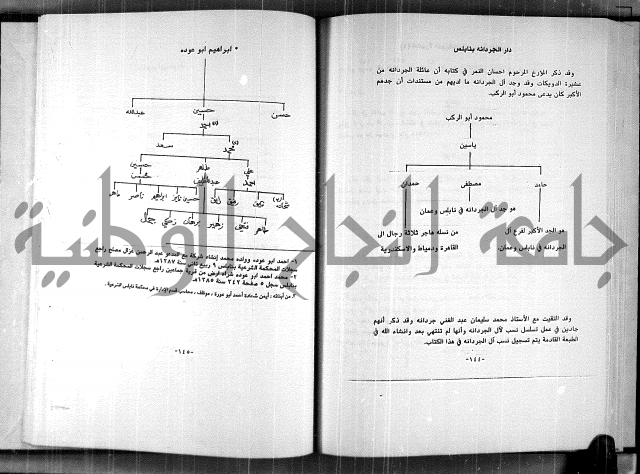 دار الجردانه بنابلس
وقد ذكر المؤرخ المرحوم احسان النمر في كتابه أن عائلة الجردانه من
عشيرة الدويكات وقد وجد آل الجردانه ما لديهم من مستندات أن جدهم
الأكبر كان يدعى محمود أبو الركب.
محمود أبو الركب
ياسين
حامد مصطفى حمدان
هو الجد الأكبر لفرع آل
الجردانه في نابلس وعمان
هو جد آل الجردانه في نابلس وعمان
من نسله هاجر ثلاثة رجال الى
القاهرة ودمياط والاسكندرية
وقد التقيت مع الأستاذ محمد سليمان عبد الغني جردانه وقد ذكر أنهم
جادين في عمل تسلسل نسب لآل الجردانه وأنها لم تنتهي بعد وانشاء الله في
الطبعة القادمة يتم تسجيل نسب آل الجردانه في هذا الكتاب.
-١٤٤-
* ابراهيم ابو عوده
حسن حسين عبدالله
احمد (١)
محمد (٢) سعد
علي طاهر حسين
احمد عبداللطيف حسن
ناصر ماهر
زهير زكي جمال
١- احمد ابو عوده وولده محمد إنشاء شركة مع السدعو عبد الرحمن عزق مصلح راجع
سجلات المحكمة الشرعية بنابلس ٩ ربيع ثاني سنة ١٢٨٧هـ
٢- محمد احمد ابو عوده شراء ارض من قرية جماعين راجع سجلات المحكمة الشرعية
بنابلس سجل ٥ صفحة ٢٤٢ سنة ١٢٨٥هـ
٣ من أبنائه : أيمن شحادة أحمد أبو عودة ، موظف ، محاسب قسم الإدارة في محكمة نابلس الشرعية .
-١٤٥-
جامعة النجاح الوطنية